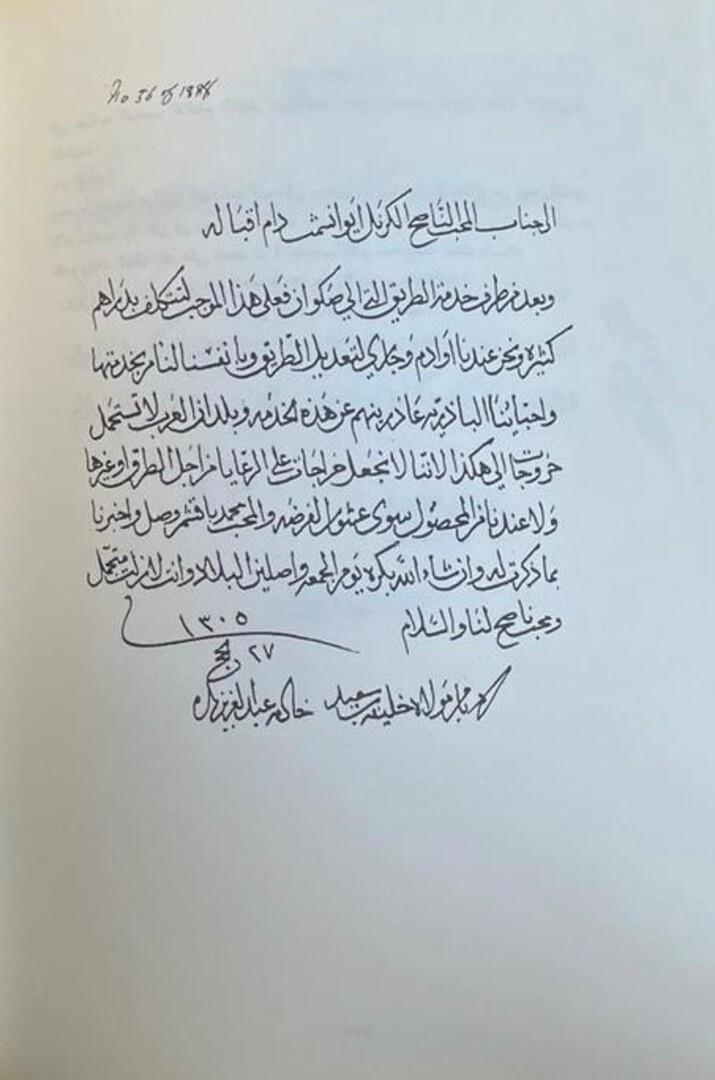 No 36 of 1888
الى جناب المحب الناصح الكرنل ايوانسمث دام اقباله
وبعد من طرف خدمة الطريق التي الى صكوان فعلى هذا الموجب لنتكلف بدراهم
كثيرة ونحن عندنا اوادم وجاري لتعديل الطريق وبانفسنا لنامر بخدمتها
واحبابنا الباذرية عاذرينهم عن هذه الخدمه وبلدان العرب لا تستحمل
خروجات الى هكذا لاننا لا نجعل خراجات على الرعايا من اجل الطرق او غيرها
ولا عندنا من المحصول سوى عشور الفرضه والمحب محمد باقشمر وصل واخبرنا
بما ذكرت له وان شاء الله بكره يوم الجمعه واصلين البلاد وانت لا زلت متجمل
ومحب ناصح لنا والسلام
١٣٠٥
٢٧ الحج
بامر مولاه خليفه بن سعيد خادمه عبدالعزيز بيده